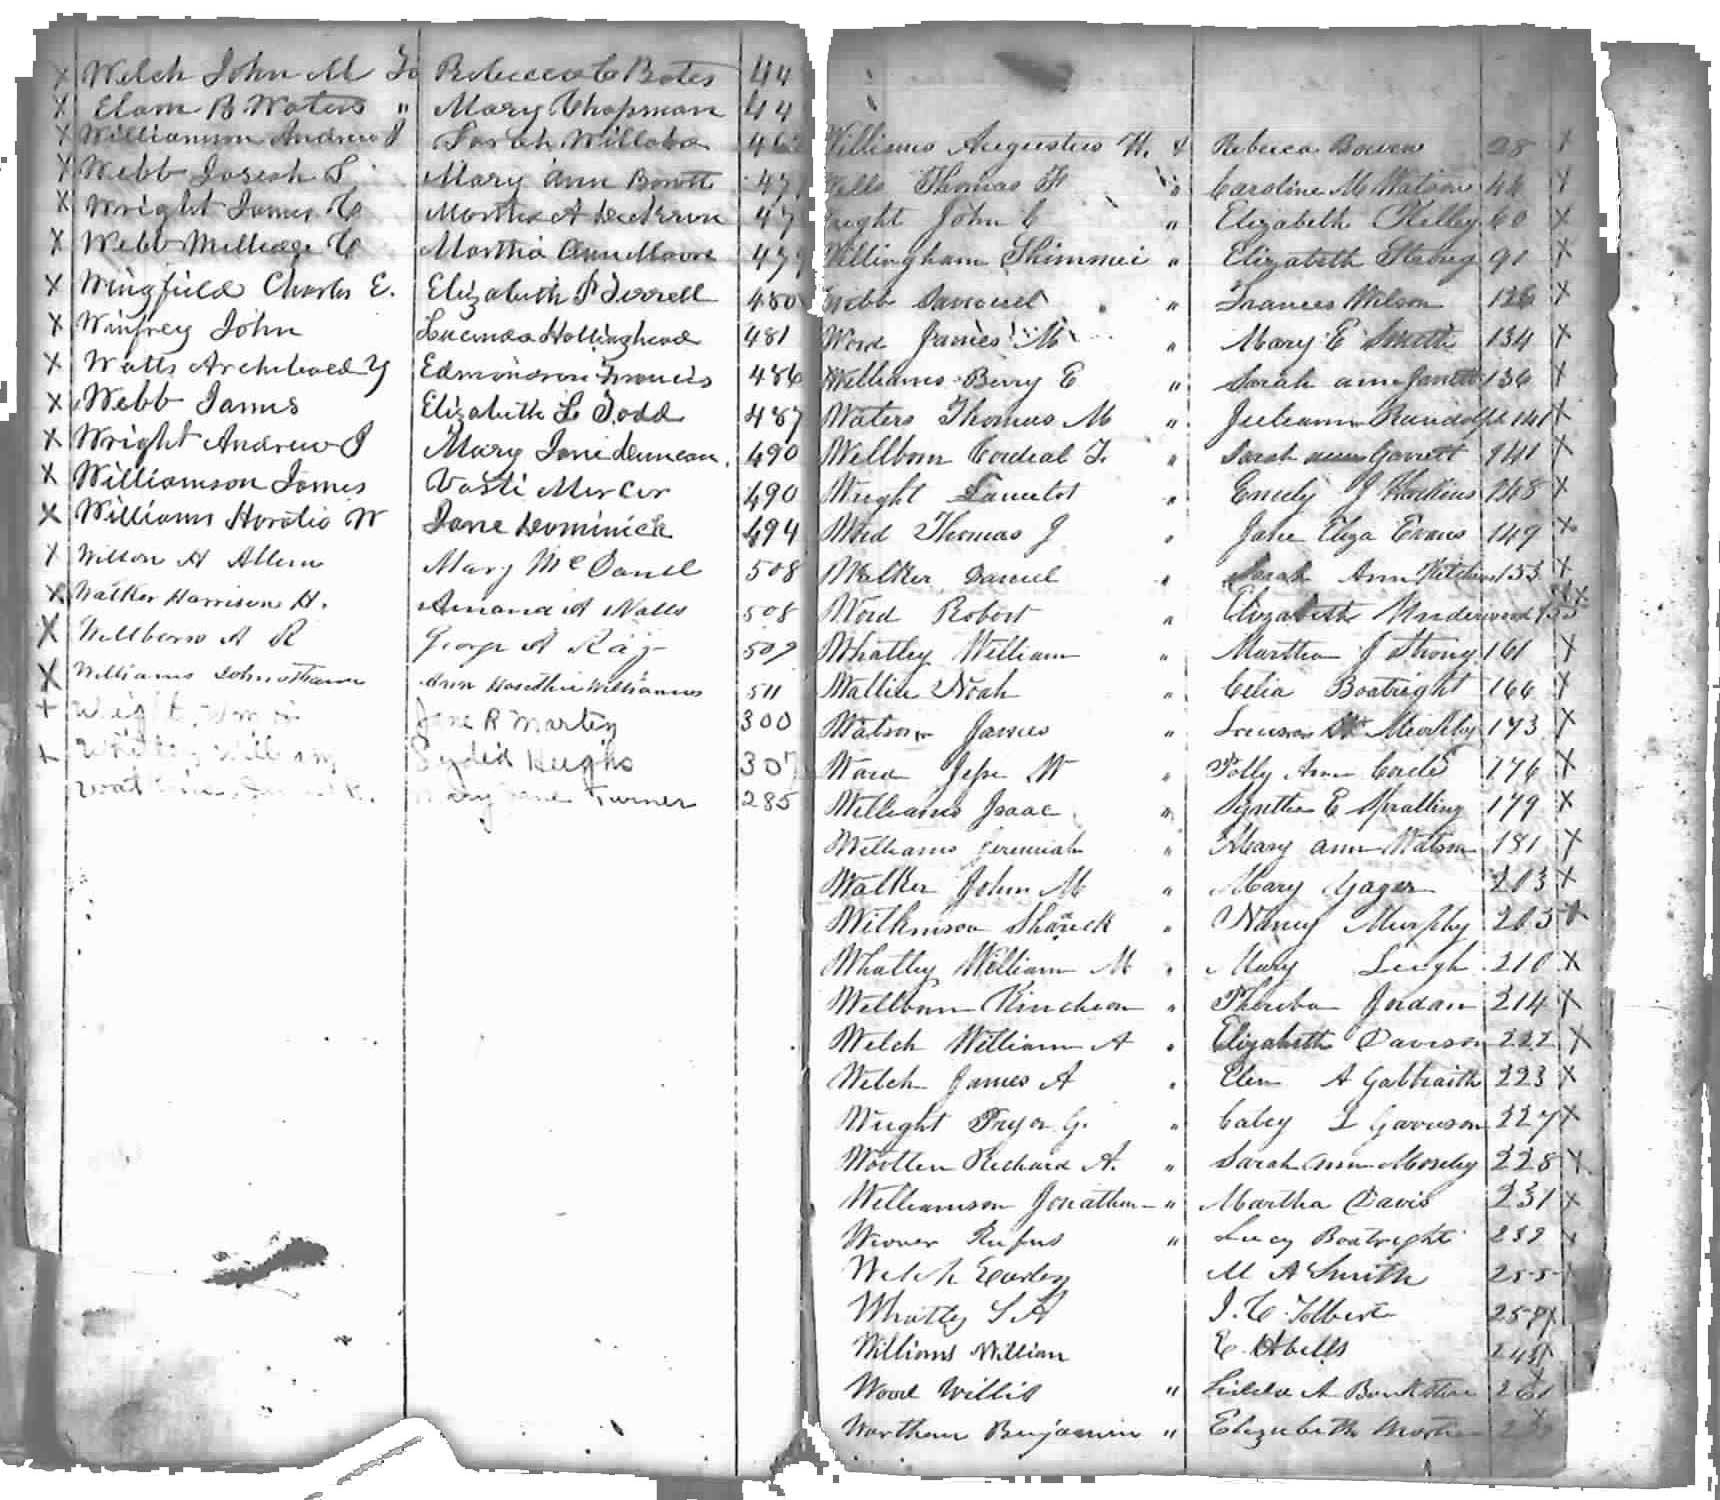 X Welch John M To Rebecca C Bates 44
X Elam B Waters " Mary Chapman 44
X Williamson Andrew J Sarah Willaba 46
X Webb Josiah S Mary Ann 47
X Wright James C Martha A Dickerson 47
X Webb Milledge C Martha Ann Moore 47
X Wingfield Charles E. Elizabeth Terrell 480
X Winfrey John Lucinda Hollinghead 481
X Watts Archibald Y Edmondson Francis 486
X Webb James Elizabeth L Todd 487
X Wright Andrew J Mary Jane Duncan 490
X Williamson James Vasti Mercer 490
X Williams Horatio W Jane Dominick 494
X Wilson H Allen Mary McDanel 508
X Walker Harrison H. Amanda A Nalls 508
X Wellborn A R George A Ray 509
X Williams Johnathan Ann Williams 511
+ Wright Jane R Martin 300
+ William Hughs 307
Mary Jane Turner 285
Williams Augustus H. & Rebecca Bowen 28 X
Wells Thomas H " Caroline M Watson 44 X
Wright John C " Elizabeth Kelley 60 X
Willingham Shimmei " Elizabeth Strong 91 X
Webb Samuel " Frances Wilson 126 X
Word James M " Mary E Smith 134 X
Williams Berry E " Sarah Ann Janett 136 X
Waters Thomas M " Juliann Randolph 141 X
Wellborn Cordial T. " Sarah Garrett 141 X
Wright Lancelot " Emily J Hawkins 148 X
Word Thomas J " Jane Eliza Evans 149 X
Walker Daniel " Sarah Ann Kitchens 153 X
Word Robert " Elizabeth Underwood 155 X
Whatley William " Martha J Strong 161 X
Wallin Noah " Celia Boatright 166 X
Watson James " Louisa Murphy 173 X
Ward Jesse W " Polly Ann Cordes 176 X
Williams Isaac " Synthia E Spratling 179 X
Williams Jeremiah " Mary ann Watson 181 X
Walker John M " Mary Yager 203 X
Wilkinson Sharick " Nancy Murphy 203 X
Whatley William M " Mary Leigh 210 X
Wellborn Kincheon " Pheriba Jordan 214 X
Welch William A " Elizabeth Davison 222 X
Welch James A " Elen A Galbraith 223 X
Wright Pryor G. " Caley L Garrison 227 X
Wootten Richard A. " Sarah Ann Moseley 228 X
Williamson Jonathan " Martha Davis 231 X
Weaver Rufus " Lucy Boatright 232 X
Welch Earley M A Smith 255
Whatley S A J. C Tolbert 257 X
Williams William E Abells 24
Wood Willis " A Bankston 261
Worthem Benjamin " Elizabeth Martin